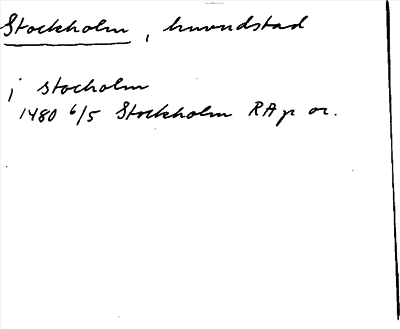 Stockholm, huvudstad
j stocholm
1480 6/5 Stockholm RA p or.